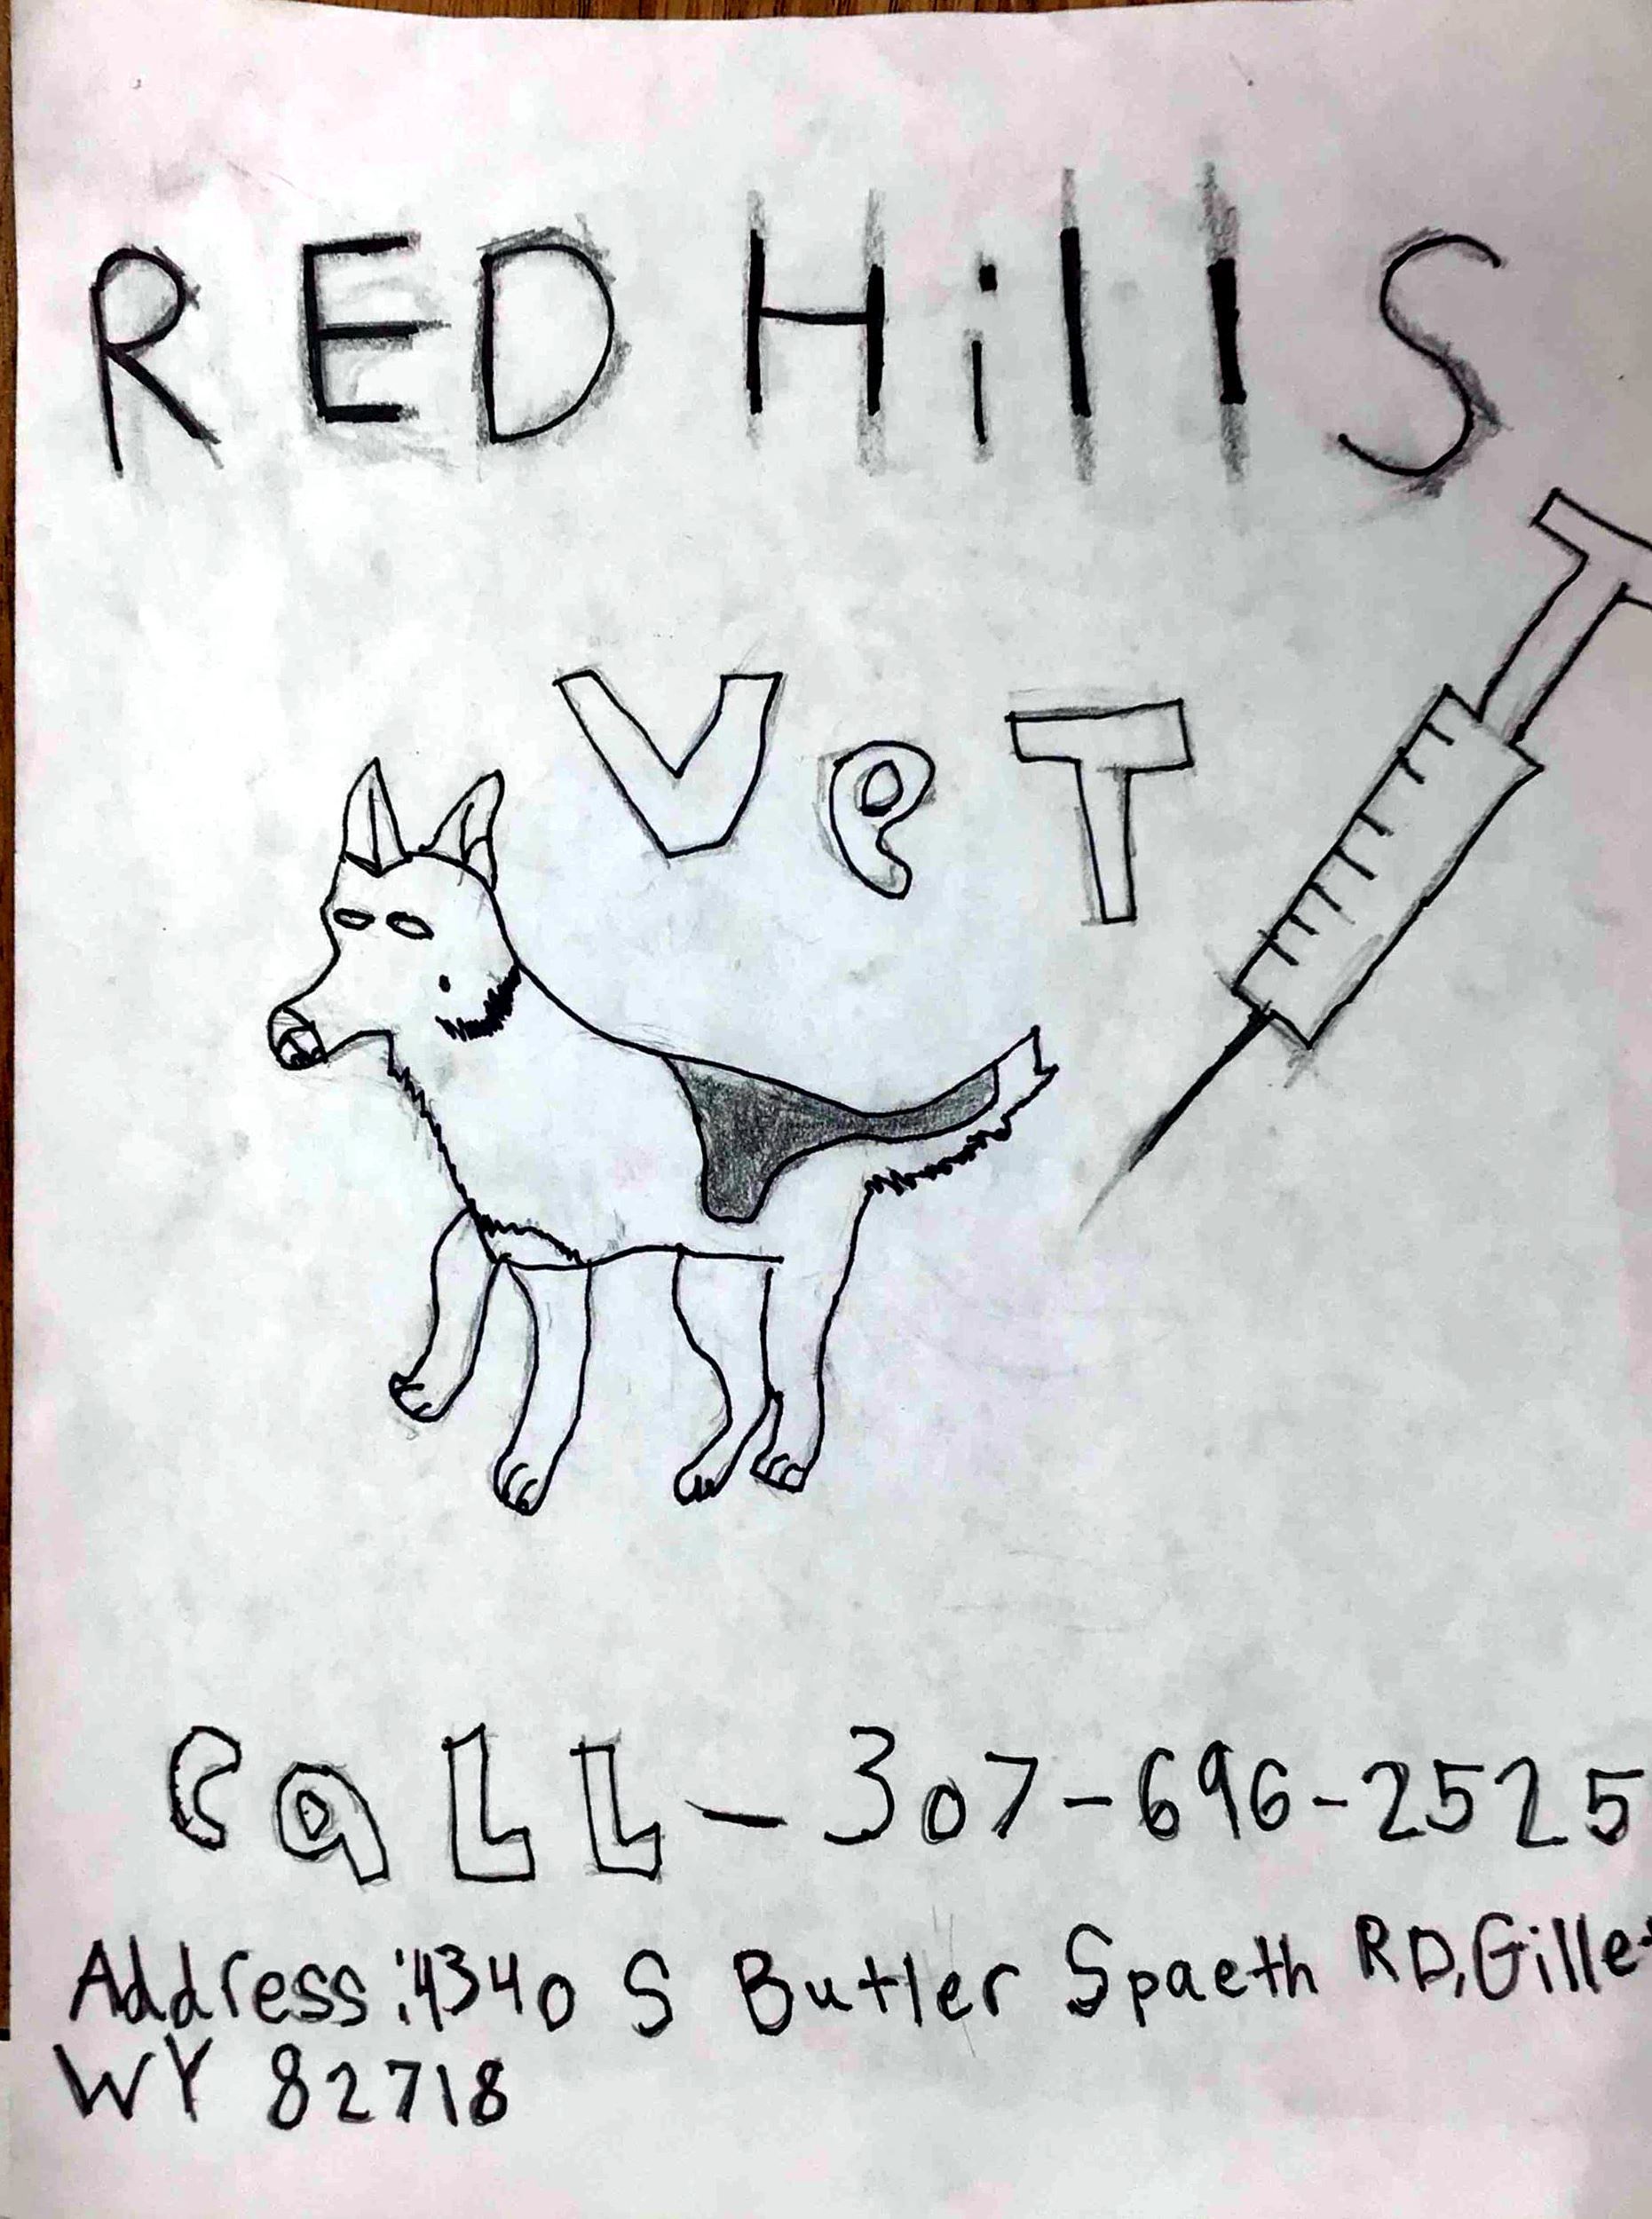 RED Hills
VeT
CaLL - 307-696-2525
Address: 4340 S Butler Spaeth RD, Gillet
WY 82718